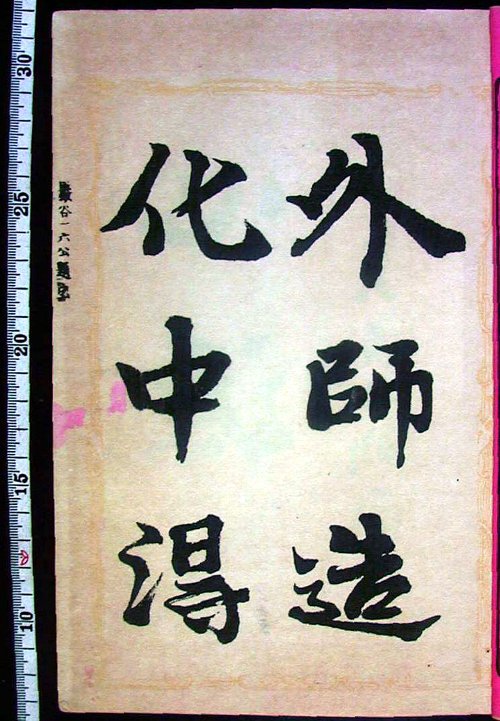 外師造
化中得
巖谷一六公題字
30
25
20
15
10